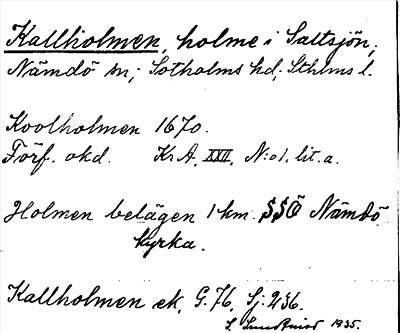 Kallholmen, holme i Saltsjön;
Nämdö sn; Sotholms hd; Sthlms l.
Koolholmen 1670.
Förf. okd. Kr A, XXII, N:o 1. lit. a.
Holmen belägen 1 km. SSÖ Nämdö
kyrka.
Kallholmen ek, G. 76, Sj: 236.
S. Lundkvist 1935.